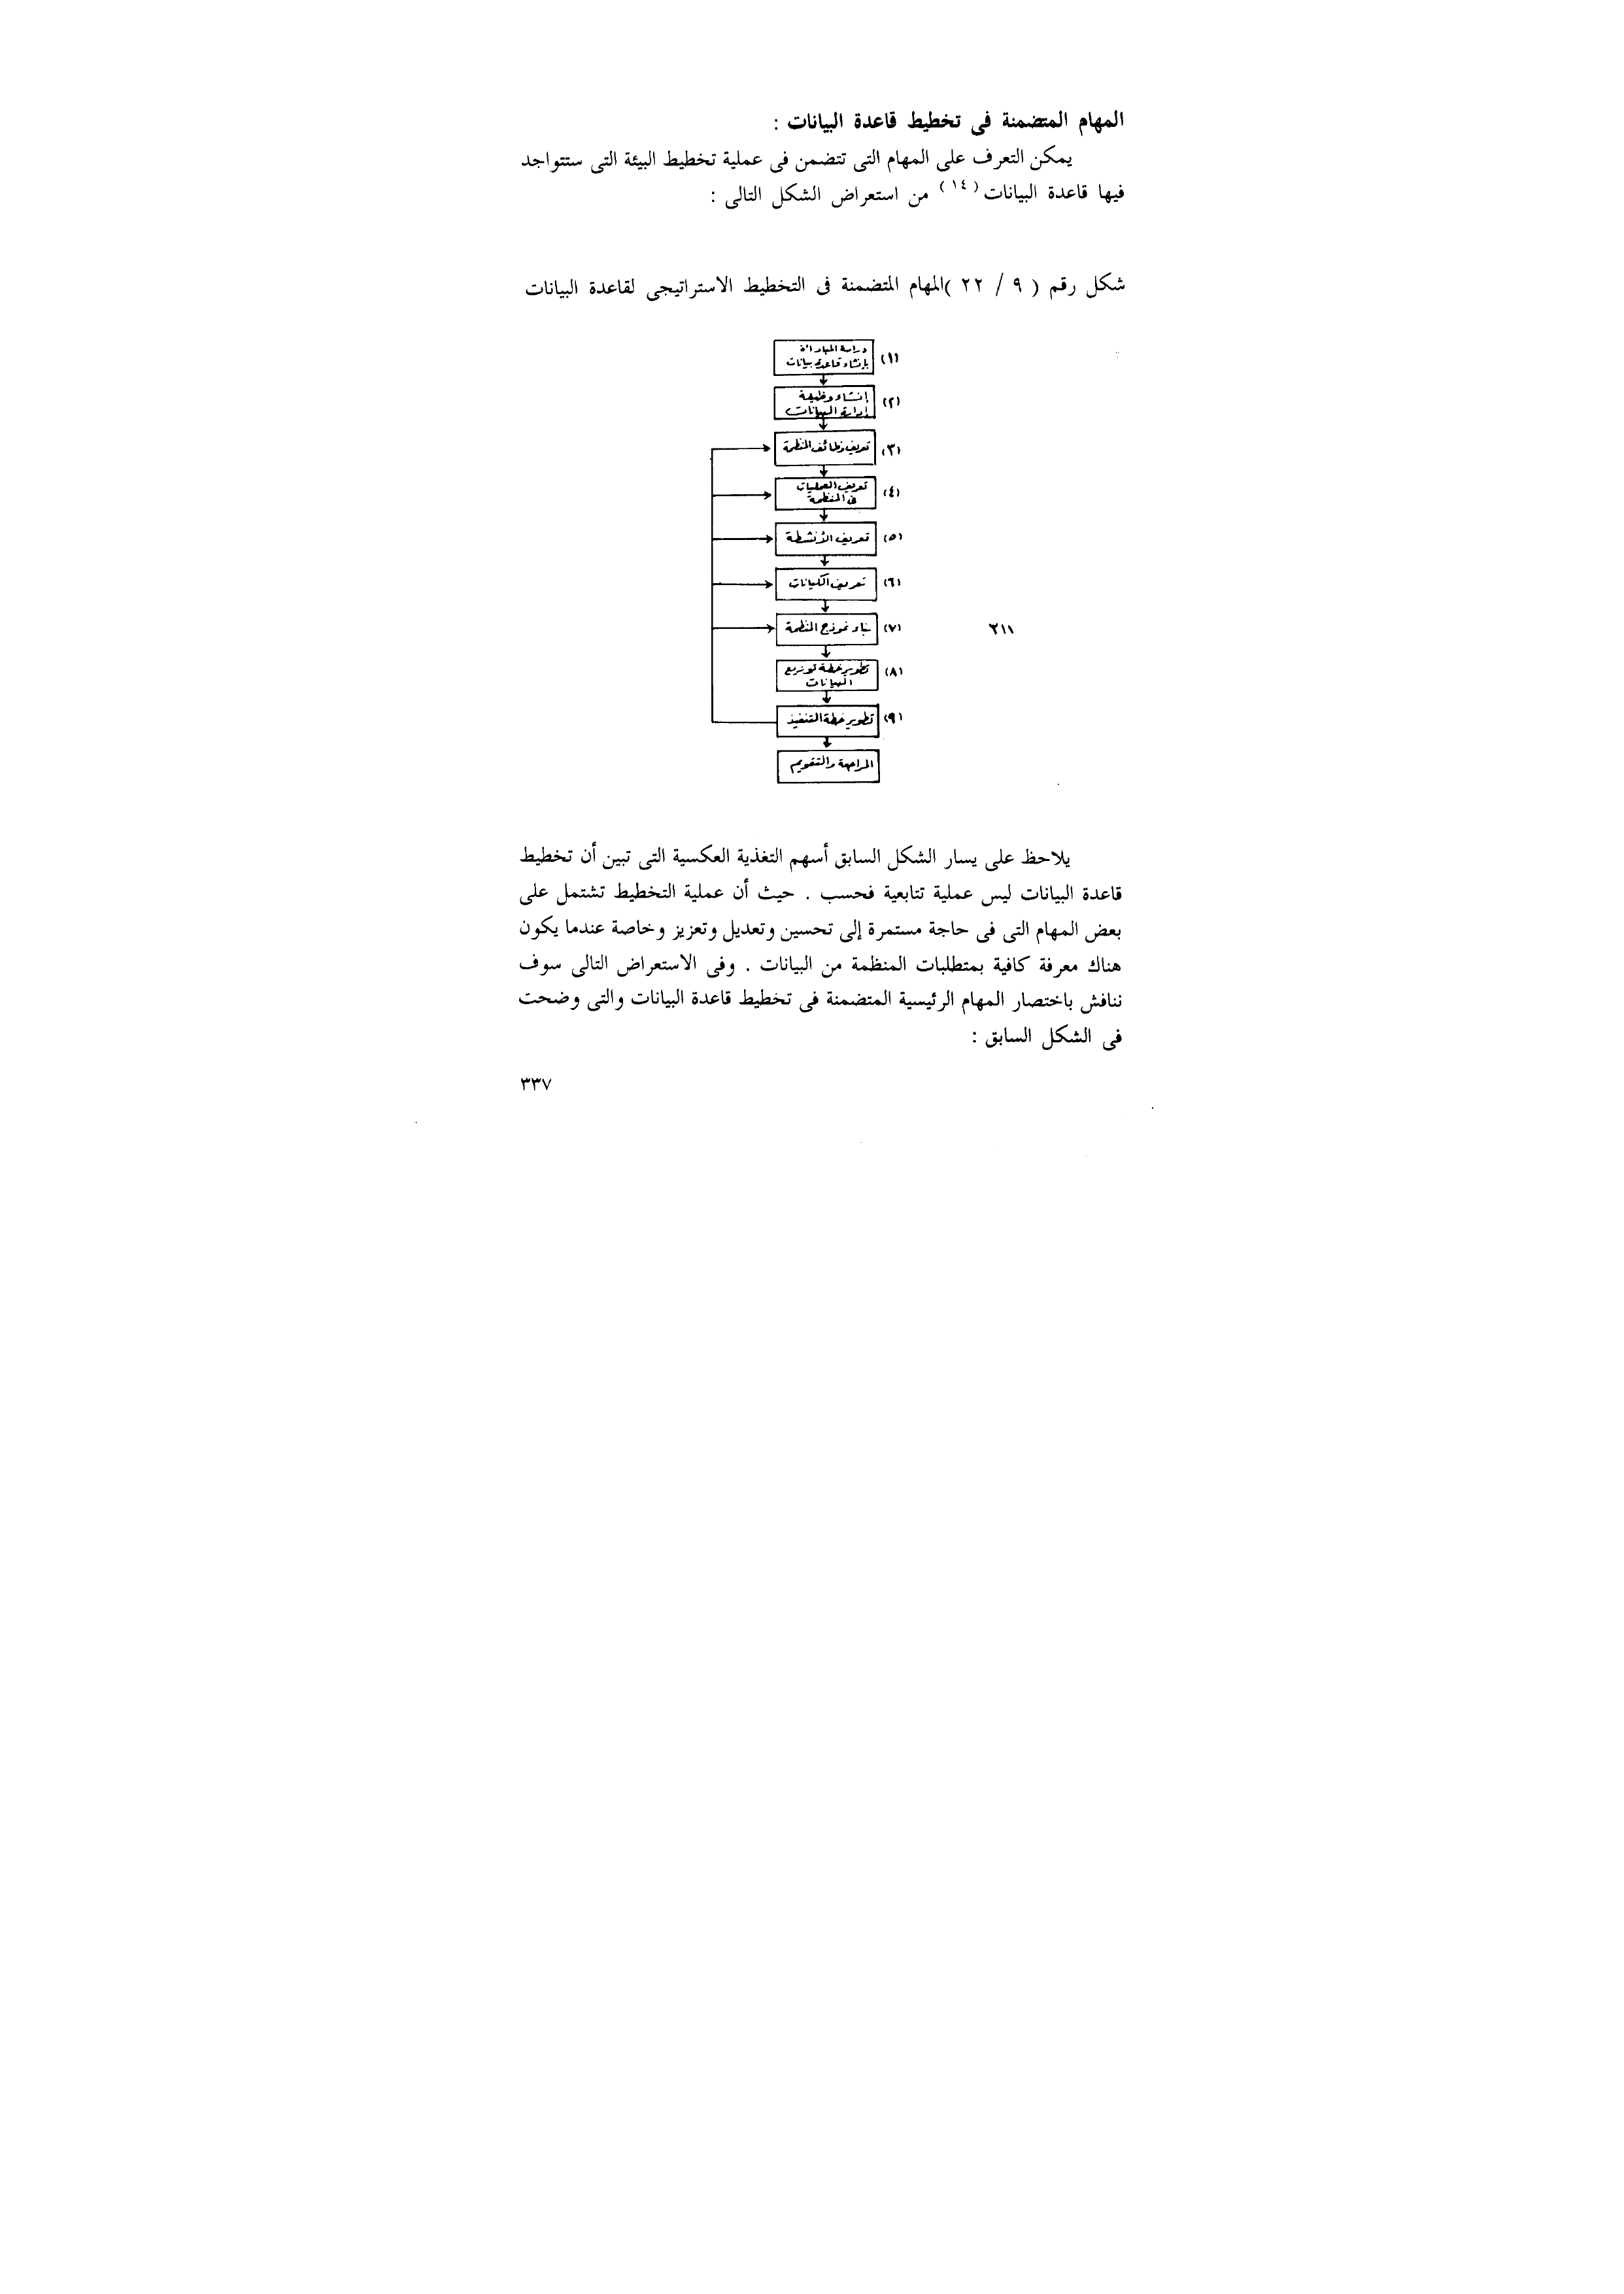 المهام المتضمنة فى تخطيط قاعدة البيانات :
يمكن التعرف على المهام التى تتضمن فى عملية تخطيط البيئة التى ستتواجد
فيها قاعدة البيانات (١٤) من استعراض الشكل التالى :
شكل رقم ( ٩ / ٢٢ )المهام المتضمنة فى التخطيط الاستراتيجى لقاعدة البيانات
(١) دراسة
بإنشاء قاعدة بيانات
(٢) إنشاء وظيفة
إدارة البيانات
(٣) تعريف وظائف المنظمة
(٤) تعريف العمليات
فى المنظمة
(٥) تعريف الأنشطة
(٦) تعريف الكيانات
(٧) بناء نموذج المنظمة
٢١١
(٨) تطوير خطة توزيع
البيانات
(٩) تطوير خطة التنفيذ
المراجعة والتقويم
يلاحظ على يسار الشكل السابق أسهم التغذية العكسية التى تبين أن تخطيط
قاعدة البيانات ليس عملية تتابعية فحسب . حيث أن عملية التخطيط تشتمل على
بعض المهام التى فى حاجة مستمرة إلى تحسين وتعديل وتعزيز وخاصة عندما يكون
هناك معرفة كافية بمتطلبات المنظمة من البيانات . وفى الاستعراض التالى سوف
نناقش باختصار المهام الرئيسية المتضمنة فى تخطيط قاعدة البيانات والتى وضحت
فى الشكل السابق :
٣٣٧